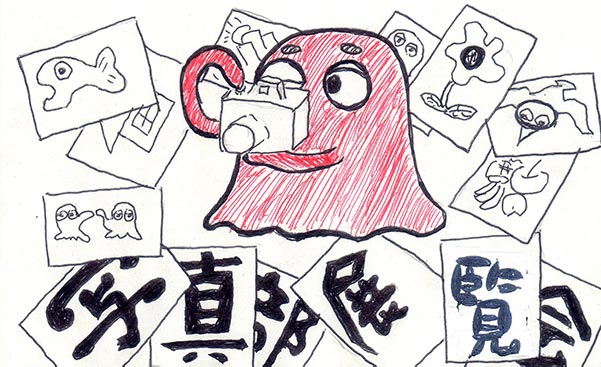 写真部展覧会